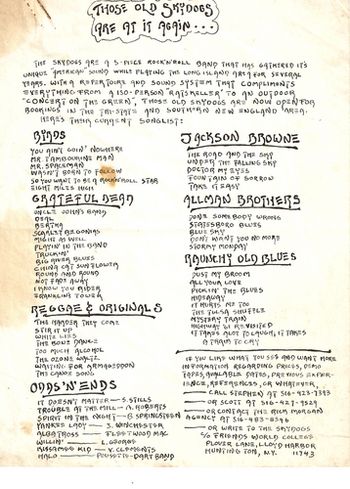 THOSE OLD SKYDOGS
ARE AT IT AGAIN...
THE SKYDOGS ARE A 5-PIECE ROCK'N'ROLL BAND THAT HAS GATHERED ITS
UNIQUE "AMERICAN SOUND" WHILE PLAYING THE LONG ISLAND AREA FOR SEVERAL
YEARS. WITH A REPERTOIRE AND SOUND SYSTEM THAT COMPLIMENTS
EVERYTHING FROM A 150-PERSON "RATSKELLER" TO AN OUTDOOR
"CONCERT ON THE GREEN", THOSE OLD SKYDOGS ARE NOW OPEN FOR
BOOKINGS IN THE TRI-STATE AND SOUTHERN NEW ENGLAND AREA.
HERES THEIR CURRENT SONGLIST:
BYRDS
YOU AIN'T GOIN' NOWHERE
MR. TAMBOURINE MAN
MR. SPACEMAN
WASN'T BORN TO FOLLOW
SO YOU WANT TO BE A ROCK'N'ROLL STAR
EIGHT MILES HIGH
GRATEFUL DEAD
UNCLE JOHN'S BAND
DEAL
BERTHA
SCARLET BEGONIAS
MIGHT AS WELL
PLAYIN' IN THE BAND
TRUCKIN'
BIG RIVER BLUES
CHINA CAT SUNFLOWER
ROUND AND ROUND
NOT FADE AWAY
I KNOW YOU RIDER
FRANKLINS TOWER
REGGAE & ORIGINALS
THE HARDER THEY COME
STIR IT UP
WHITE LIES
THE BONE DANCE
TOO MUCH ALCOHOL
THE OZONE WALTZ
WAITING FOR ARMAGEDDON
THE CANOE SONG
ODDS 'N' ENDS
IT DOESN'T MATTER — S. STILLS
TROUBLE AT THE MILL — A. ROBERTS
SPIRIT IN THE NIGHT — B. SPRINGSTEEN
YANKEE LADY — J. WINCHESTER
ALBATROSS — FLEETWOOD MAC
WILLIN' — L. GEORGE
KISSAMEE KID — V. CLEMENTS
HALO — PERSETH-DART BAND
JACKSON BROWNE
THE ROAD AND THE SKY
UNDER THE FALLING SKY
DOCTOR MY EYES
FOUNTAIN OF SORROW
TAKE IT EASY
ALLMAN BROTHERS
DONE SOMEBODY WRONG
STATESBORO BLUES
BLUE SKY
DON'T WANT YOU NO MORE
STORMY MONDAY
RAUNCHY OLD BLUES
DUST MY BROOM
ALL YOUR LOVE
PICKIN' THE BLUES
HIDEAWAY
IT HURTS ME TOO
THE TULSA SHUFFLE
MYSTERY TRAIN
HIGHWAY 61 REVISITED
IT TAKES ALOT TO LAUGH, IT TAKES
A TRAIN TO CRY
IF YOU LIKE WHAT YOU SEE AND WANT MORE
INFORMATION REGARDING PRICES, DEMO
TAPES, AVAILABLE DATES, PREVIOUS EXPER-
IENCE, REFERENCES, OR WHATEVER,
— CALL STEPHEN AT 516-423-7393
— OR SCOTT AT 516-427-9529
— OR CONTACT THE RICK MORGAN
AGENCY AT 516-483-
— OR WRITE TO THE SKYDOGS
C/O FRIENDS WORLD COLLEGE
PLOVER LANE, LLOYD HARBOR
HUNTINGTON, N.Y. 11743